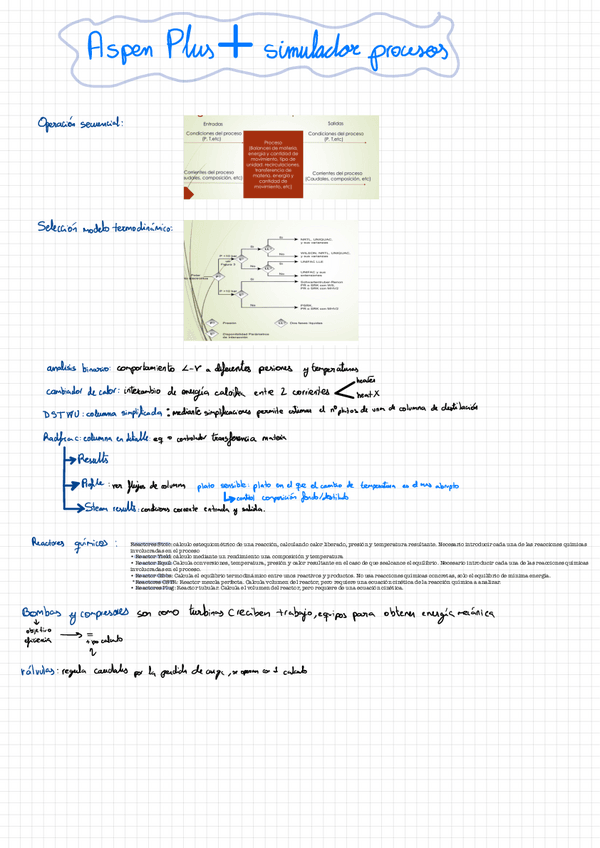 Aspen Plus + simulador procesos
Operación secuencial:
Entradas
Salidas
Condiciones del proceso
(P, T,etc)
Condiciones del proceso
(P, T,etc)
Proceso
(Balances de materia,
energía y cantidad de
movimiento, tipo de
unidad, recirculaciones,
transferencia de
materia, energía y
cantidad de
movimiento, etc)
Corrientes del proceso
caudales, composición, etc)
Corrientes del proceso
(Caudales, composición, etc)
Selección modelo termodinámico:
Si
No
Presión
Dos fases líquidas
Disponibilidad Parámetros
de interacción
analisis binario: comportamiento L-V a diferentes presiones y temperaturas
cambiador de calor: intercambio de energía calorifica entre 2 corrientes
heater
heat X
DSTWU: columna simplificada: mediante simplificaciones permite estimar el nº platos de una columna de destilación
Radfrac: columna en detalle eq + controlador transferencia materia
Results
Profile: ver flujos de column
plato sensible: plato en el que el cambio de temperatura es el mas abrupto
control composición fondo/destilado
Steam results: condiciones corriente entrada y salida.
Reactores químicos:
Reactores Stoic: calculo estequiométrico de una reacción, calculando calor liberado, presión y temperatura resultante. Necesario introducir cada una de las reacciones químicas
involucradas en el proceso
• Reactor Yield: calculo mediante un rendimiento una composición y temperatura
• Reactor Equil: Calcula conversiones, temperatura, presión y calor resultante en el caso de que se alcance el equilibrio. Necesario introducir cada una de las reacciones químicas
involucradas en el proceso.
• Reactor Gibbs: Calcula el equilibrio termodinámico entre unos reactivos y productos. No usa reacciones químicas concretas, sólo el equilibrio de mínima energía.
• Reactores CSTR: Reactor mezcla perfecta. Calcula volumen del reactor, pero requiere una ecuación cinética de la reacción química a analizar.
• Reactores Plug: Reactor tubular. Calcula el volumen del reactor, pero requiere de una ecuación cinética.
Bombas y compresores son como turbinas (reciben trabajo, equipos para obtener energía mecánica
objetivo
eficiencia
=
tipo calculo
válvulas: regula caudales por la perdida de carga,